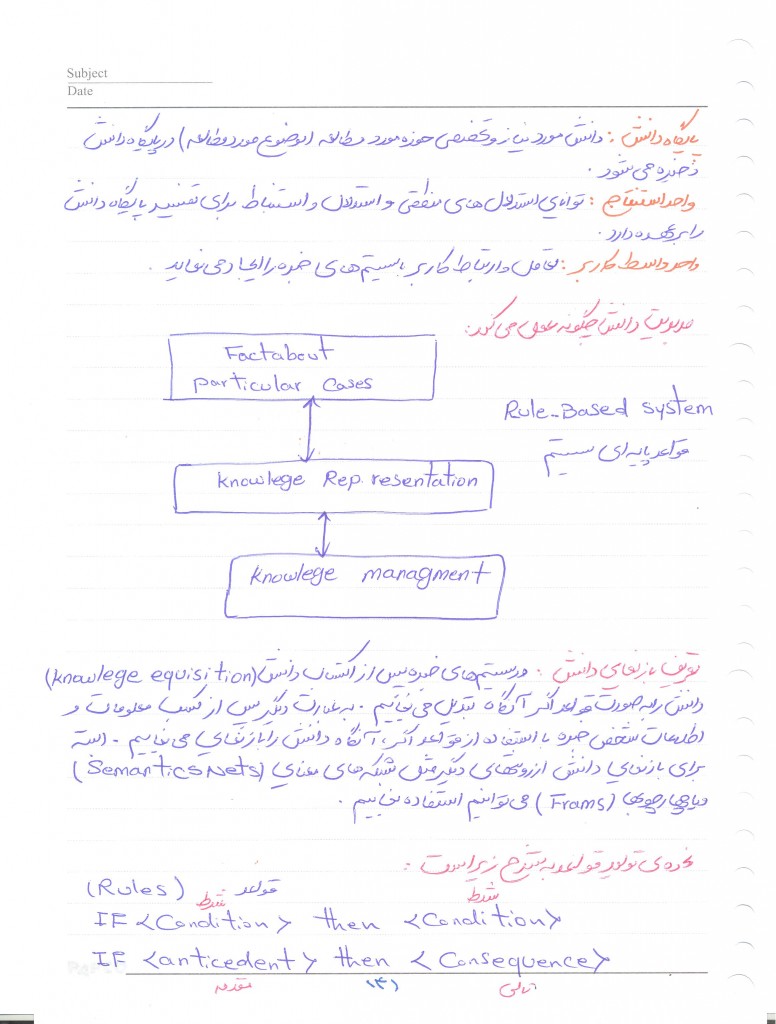 Subject
Date
پایگاه دانش : دانش مورد نیاز و تخصصی حوزه مورد مطالعه (موضوع مورد مطالعه) در پایگاه دانش
ذخیره می شود .
واحد استنتاج : توانایی استدلال های منطقی و استدلال و استنباط برای تفسیر پایگاه دانش
را بر عهده دارد .
واحد واسط کاربر : تعامل و ارتباط کاربر با سیستم های خبره را ایجاد می نماید .
مدیریت دانش چگونه عمل می کند:
Fact about
particular Cases
Rule-Based system
قواعد پایه ای سیستم
Knowlege Rep.resentation
Knowlege managment
تعریف بازنمای دانش : در سیستم های خبره پس از اکتساب دانش (knowlege equisition)
دانش را به صورت قواعد اگر آنگاه تبدیل می نمائیم . به عبارت دیگر پس از کسب معلومات و
اطلاعات شخص خبره با استفاده از قواعد اگر، آنگاه دانش را بازنمای می نمائیم . البته
برای بازنمای دانش از روشهای دیگر مثل شبکه های معنای (Semantics Nets)
و یا چهارچوبها (Frams) می توانیم استفاده نمائیم .
نحوه ی تولید قواعد به شرح زیر است :
(Rules) قواعد
شرط شرط
IF <Condition> then <Condition>
IF <anticedent> then <Consequence>
مقدمه (۳) تالی